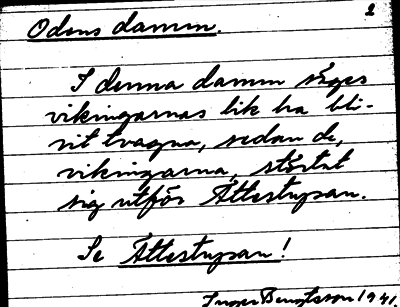 2
Odens damm.
I denna damm säges
vikingarnas lik ha bli-
vit tvagna, sedan de,
vikingarna, störtat
sig utför Ättestupan.
Se Ättestupan!
Inger Bengtsson 1941.